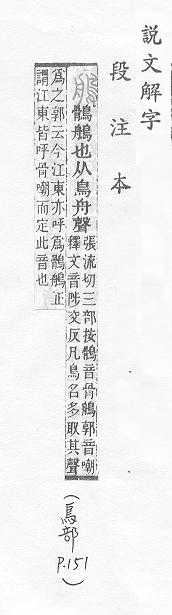 說文解字
段注本
鶻鵃也从鳥舟聲
張流切三部按鶻音骨鵃郭音嘲
釋文音陟交反凡鳥名多取其聲
爲之郭云今江東亦呼爲鶻鵃正
謂江東皆呼骨嘲而定此音也
(鳥部
P.151)